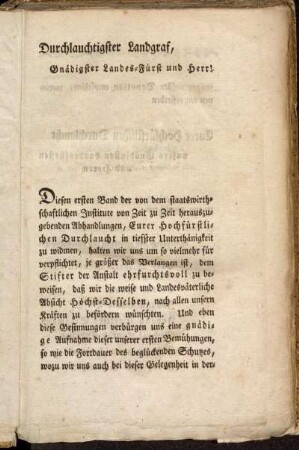 Durchlauchtigster Landgraf,
Gnädigster Landes-Fürst und Herr!
Diesen ersten Band der von dem staatswirth-
schaftlichen Institute von Zeit zu Zeit herauszu-
gebenden Abhandlungen, Eurer Hochfürstli-
chen Durchlaucht in tiefster Unterthänigkeit
zu widmen, halten wir uns um so vielmehr für
verpflichtet, je größer das Verlangen ist, dem
Stifter der Anstalt ehrfurchtsvoll zu be-
weisen, daß wir die weise und Landesväterliche
Absicht Höchst-Desselben, nach allen unsern
Kräften zu befördern wünschten. Und eben
diese Gesinnungen verbürgen uns eine gnädi-
ge Aufnahme dieser unserer ersten Bemühungen,
so wie die Fortdauer des beglückenden Schutzes,
wozu wir uns auch bei dieser Gelegenheit in der-